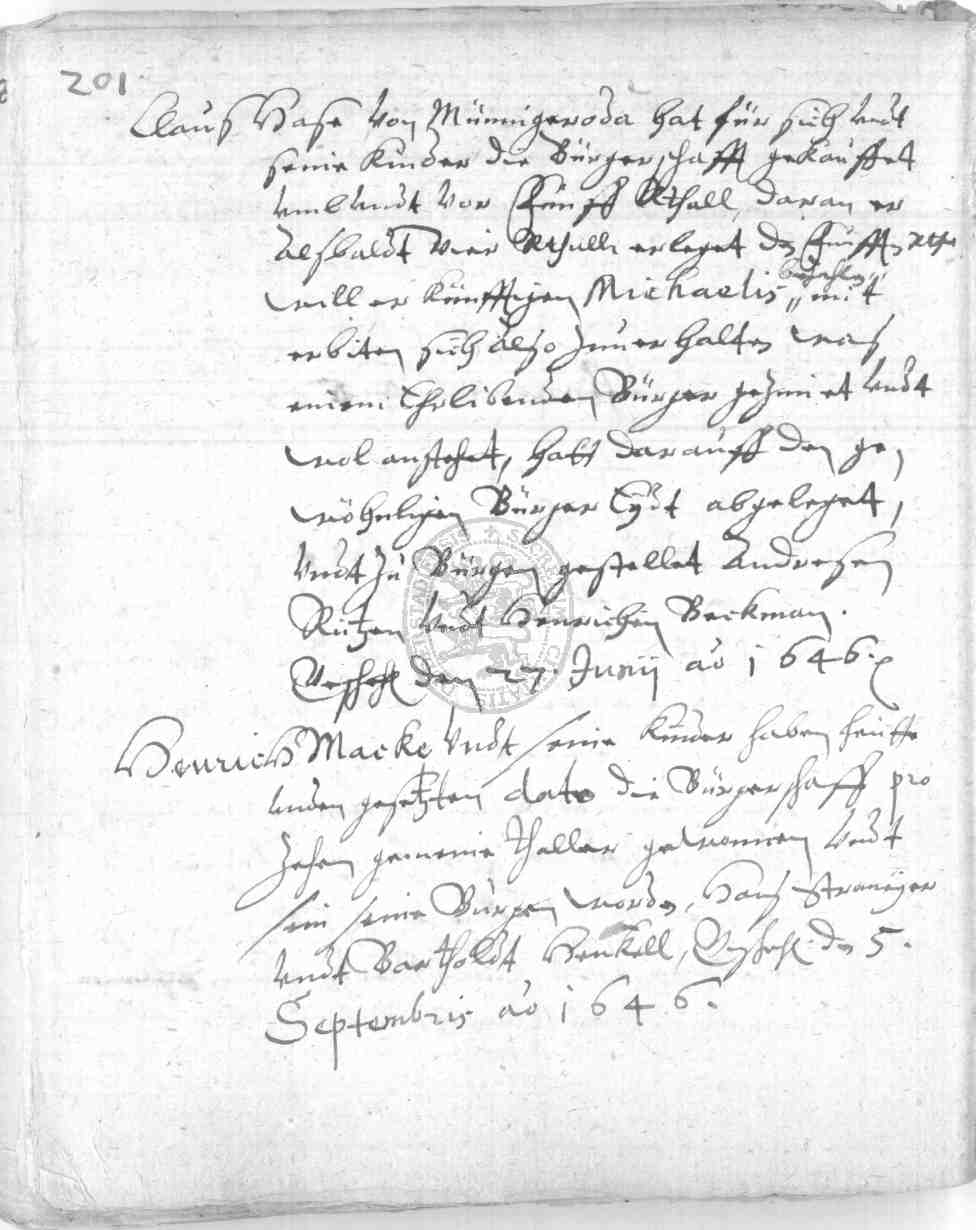 201
Claus Hase von Münnigeroda hat für sich undt
seine Kinder die Bürgerschafft gekauffet
umb undt vor Fünff Rthall, daran er
alsbaldt vier Rthall erleget den Fünfften Rthr
will er künfftigen Michaelis bezahlen, mit
erbiten sich also zuuerhalten was
einem Ehrlibenden Bürger geziemet undt
wol anstehet, hatt darauff den ge,
wöhnligen Bürger Eydt abgeleget,
undt zu Bürgen gestellet Andresen
Rützen undt Henrichen Beckman.
Geschehen den 27. Junij ao 1646.
Henrich Macke undt seine Kinder haben heutte
unden gesetzten dato die Bürgerschafft pro
Zehen gemeine thaller gewonnen undt
sein seine Bürgen worden, Hans Strameyer
undt Bartholdt Henkell, Geschehen den 5.
Septembris ao 1646.